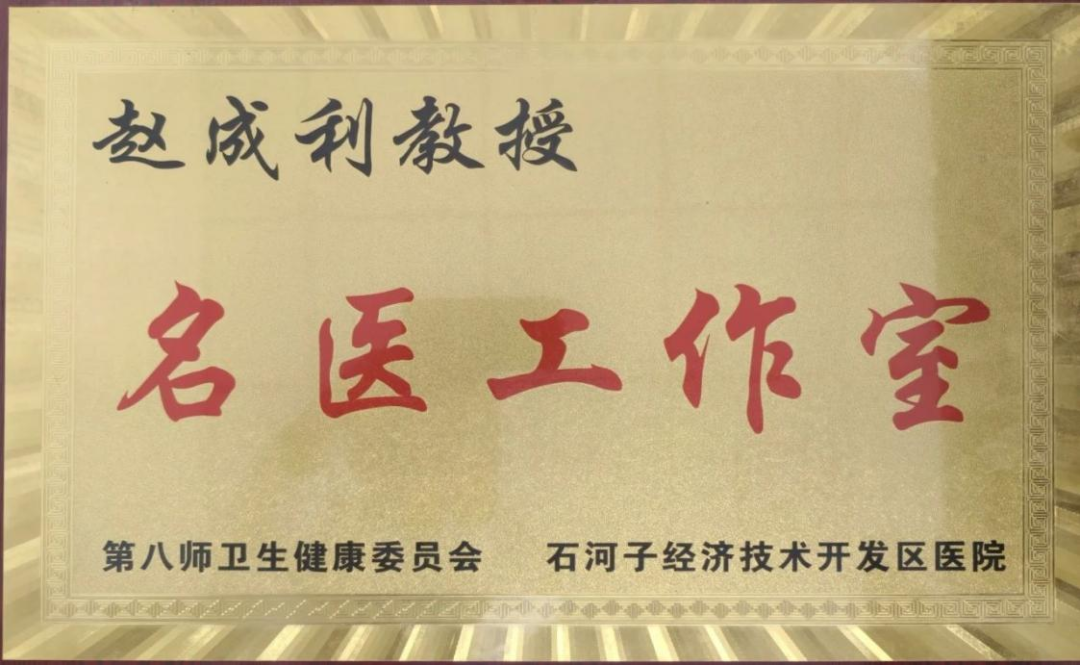 赵成利教授
名医工作室
第八师卫生健康委员会 石河子经济技术开发区医院